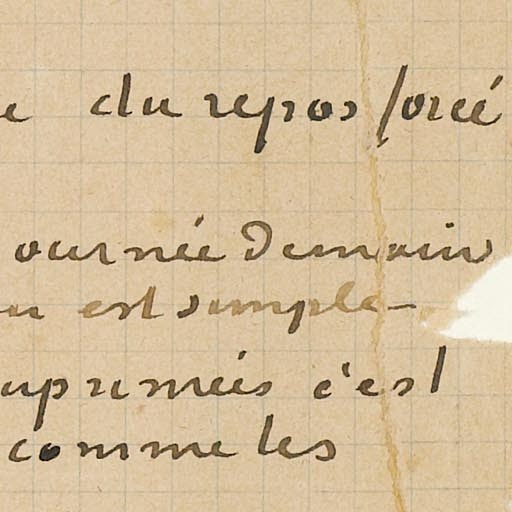 e du repos forcé
ournée Demain
u est simple-
uprimées c'est
comme les